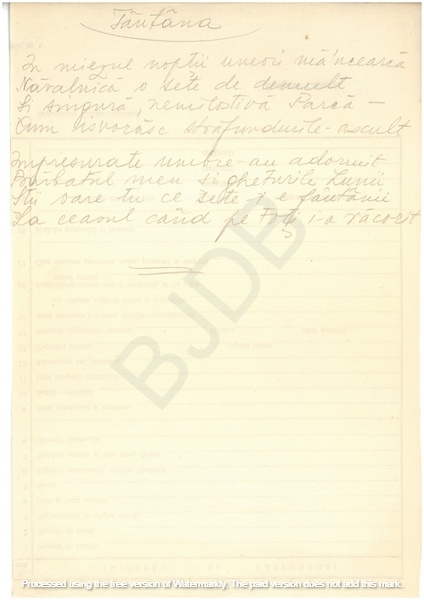 Fântâna
In miezul nopții uneori mă'ncearcă
Năvalnică o sete de demult
Si singură, nemilostiva Parcă –
Cum isvorăsc străfundurile - ascult
Împresurate umbre-au adormit
Bărbatul meu si ghețurile Lunii
Stii oare tu ce sete i-e fântânii
La ceasul când pe toți i-a răcorit
BJDB
Processed using the free version of Watermarkly. The paid version does not add this mark.